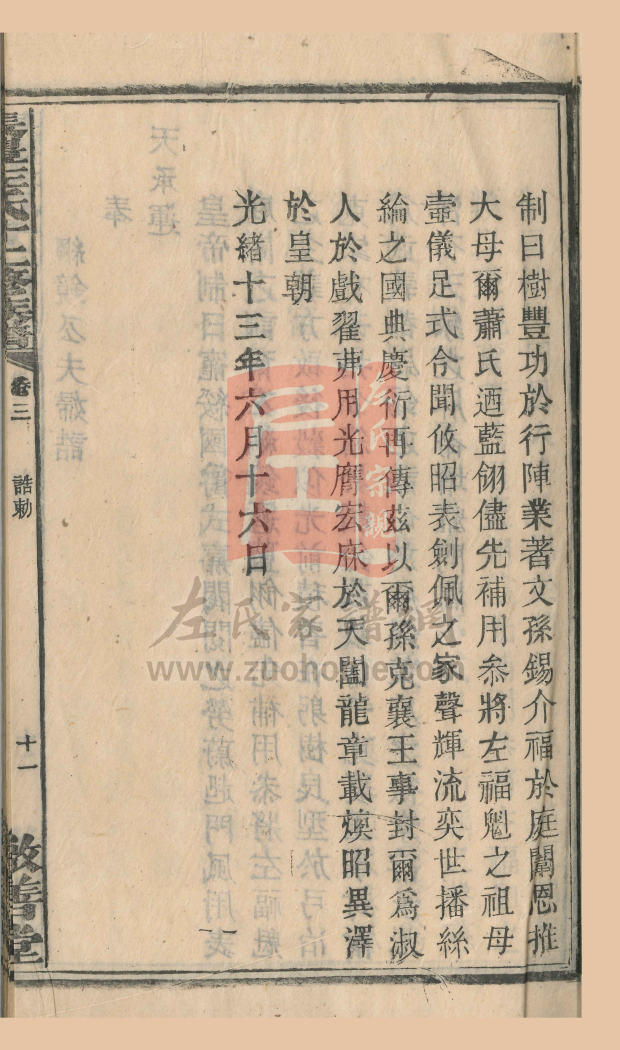 制曰樹豐功於行陣業著文孫錫介福於庭闈恩推
大母爾蕭氏迺藍翎儘先補用叅將左福魁之祖母
壼儀足式令聞攸昭表劍佩之家聲輝流奕世播絲
綸之國典慶衍再傳茲以爾孫克襄王事封爾爲淑
人於戲翟茀用光膺宏庥於天闔龍章載煥昭異澤
於皇朝
光緒十三年六月十六日
卷三 誥勅 十一
敦善堂
左氏宗親
左氏家譜網
www.zuohome.com